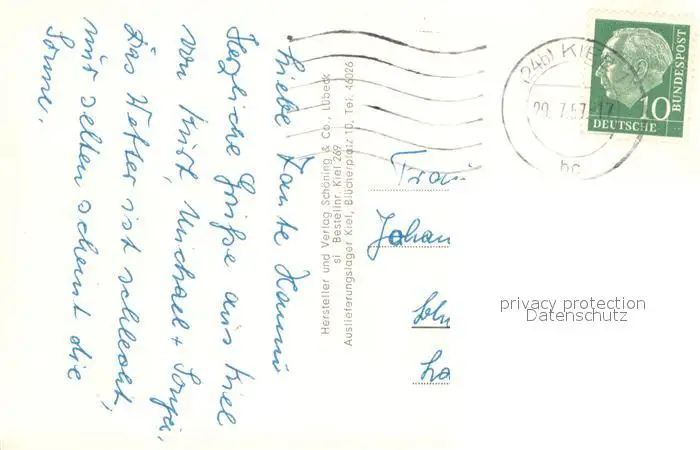 Liebe Tante Hanni
Herzliche Grüße aus Kiel
von Kurt, Michael + Sonja.
Das Wetter ist schlecht,
nur selten scheint die
Sonne.
Hersteller und Verlag Schöning & Co., Lübeck
si Bestellnr. Kiel 269
Auslieferungslager Kiel, Blücherplatz 10, Tel. 46026
(24b) KIEL
20.7.57-17
bc
10
DEUTSCHE
BUNDESPOST
Frau
Johan
privacy protection
Datenschutz